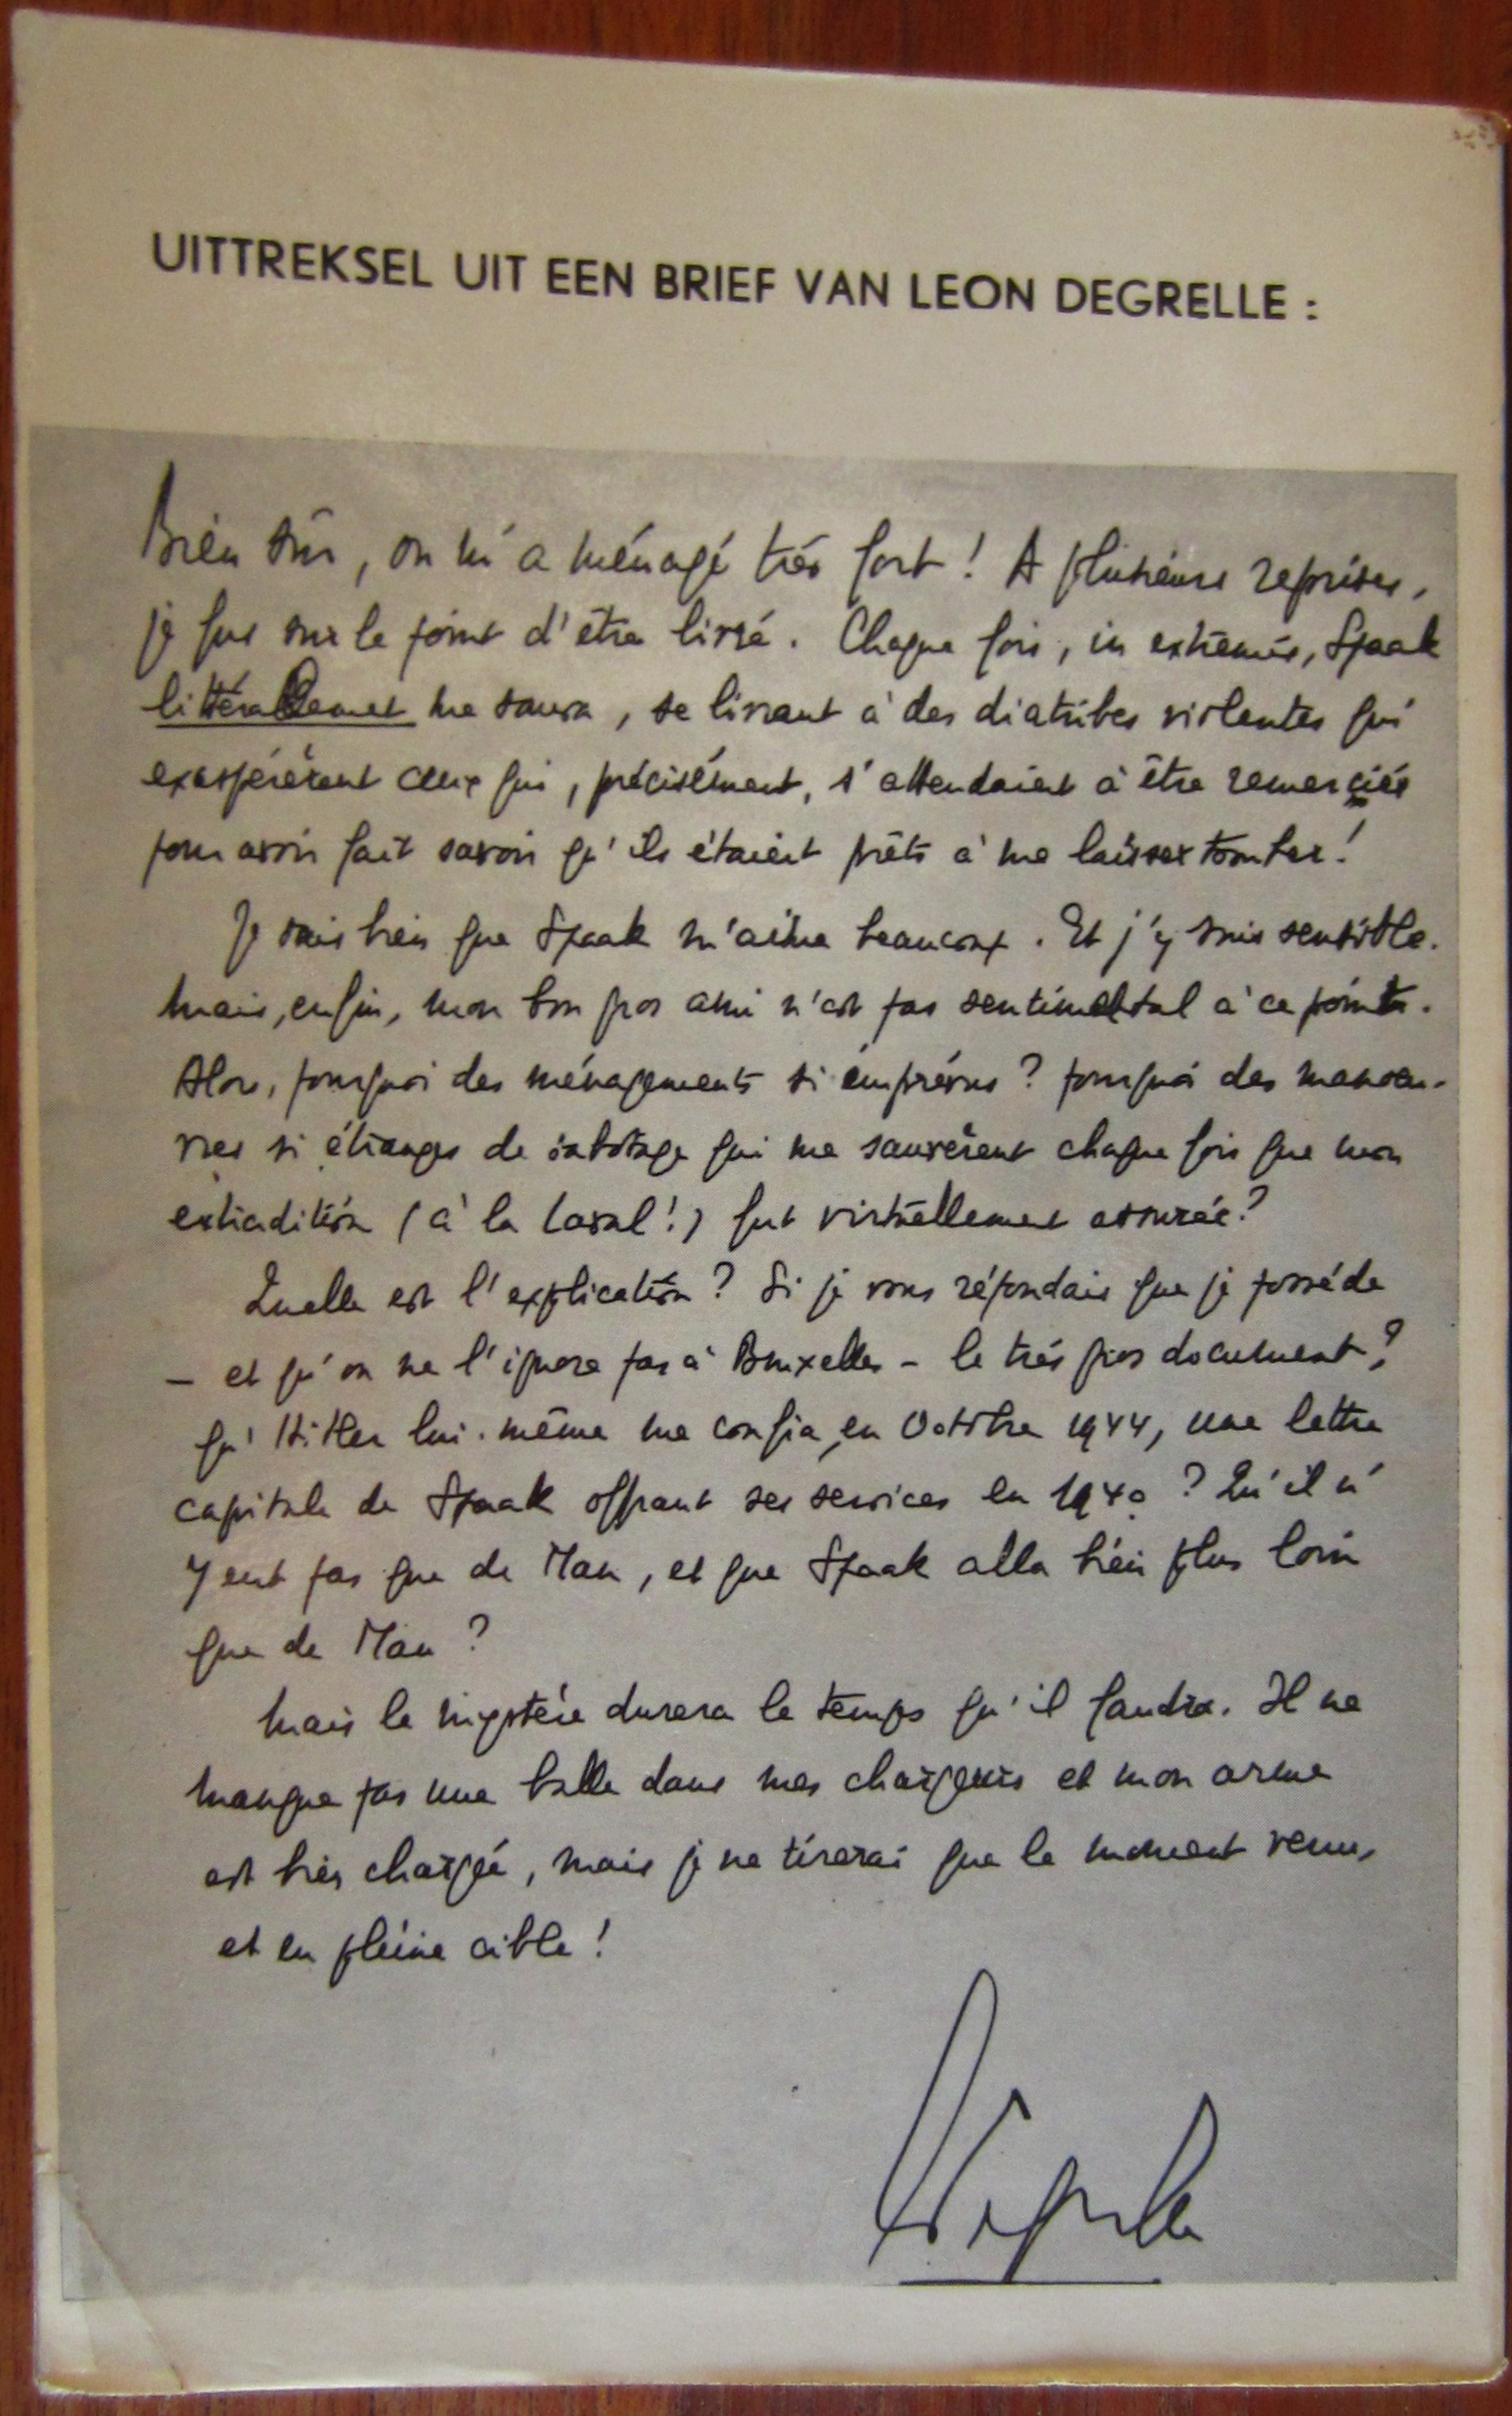 UITTREKSEL UIT EEN BRIEF VAN LEON DEGRELLE :
Bien sûr, on m'a ménagé très fort ! A plusieurs reprises,
je fus sur le point d'être livré. Chaque fois, in extremis, Spaak
littérallement me sauva, se livrant à des diatribes violentes qui
exaspérèrent ceux qui, précisément, s'attendaient à être remerciés
pour avoir fait savoir qu'ils étaient prêts à me laisser tomber !
Je sais bien que Spaak m'aime beaucoup. Et j'y suis sensible.
Mais, enfin, mon bon gros ami n'est pas sentimental à ce point.
Alors, pourquoi des ménagements si imprévus ? pourquoi des manoeu-
vres si étranges de sabotage qui me sauvèrent chaque fois que mon
extradition (à la Laval !) fut virtuellement assurée ?
Quelle est l'explication ? Si je vous répondais que je possède
— et qu'on ne l'ignore pas à Bruxelles — le très gros document ?
qu'Hitler lui-même me confia, en Octobre 1944, une lettre
capitale de Spaak offrant ses services en 1940 ? Qu'il n'
y eut pas que de Man, et que Spaak alla bien plus loin
que de Man ?
Mais le mystère durera le temps qu'il faudra. Il ne
manque pas une balle dans mes chargeurs et mon arme
est bien chargée, mais je ne tirerai que le moment venu,
et en pleine cible !
Degrelle